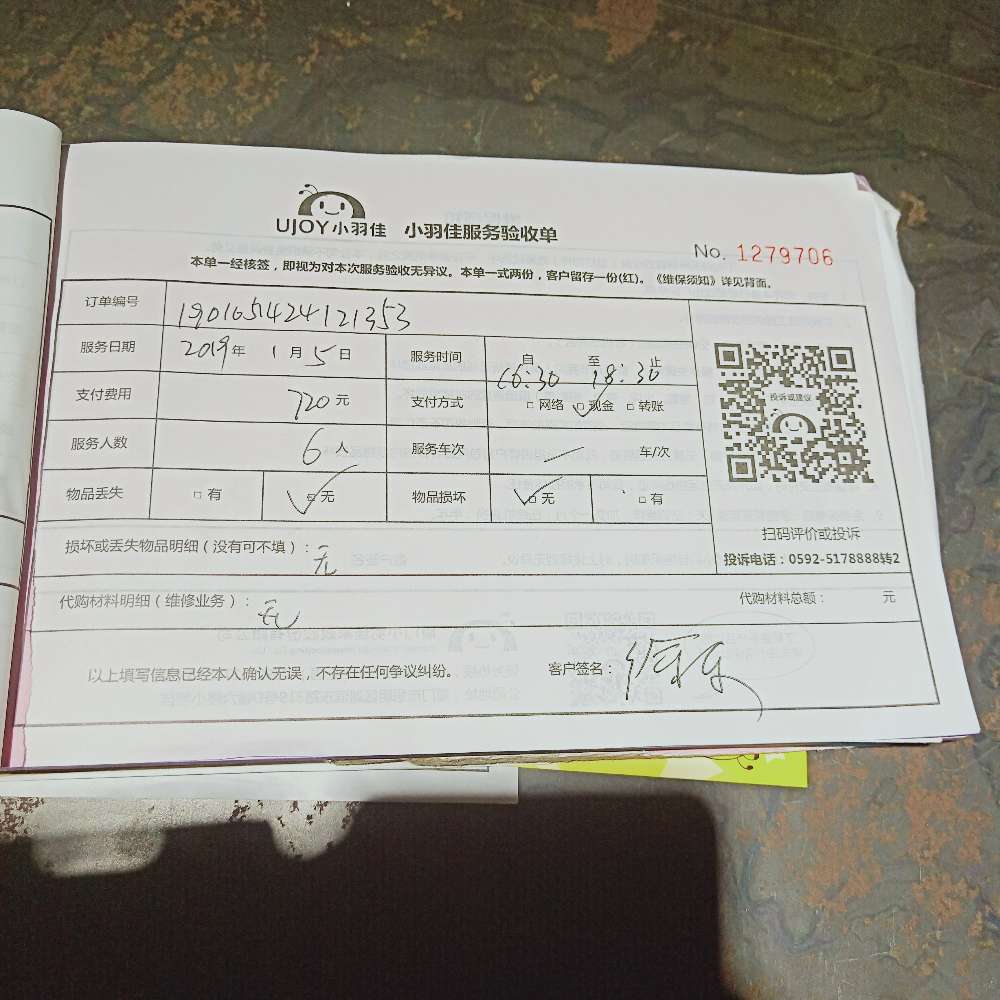 UJOY小羽佳 小羽佳服务验收单
No. 1279706
本单一经核签，即视为对本次服务验收无异议。本单一式两份，客户留存一份(红)。《维保须知》详见背面。
订单编号 190105142412​1353
服务日期 2019年 1月5日 服务时间 自 16:30 至 18:30 止
支付费用 720元 支付方式 □网络 □现金 □转账
投诉或建议
服务人数 6人 服务车次 — 车/次
物品丢失 □有 □无 物品损坏 □无 □有
扫码评价或投诉
投诉电话：0592-5178888转2
损坏或丢失物品明细（没有可不填）：无
代购材料明细（维修业务）：无 代购材料总额： 元
以上填写信息已经本人确认无误，不存在任何争议纠纷。 客户签名：